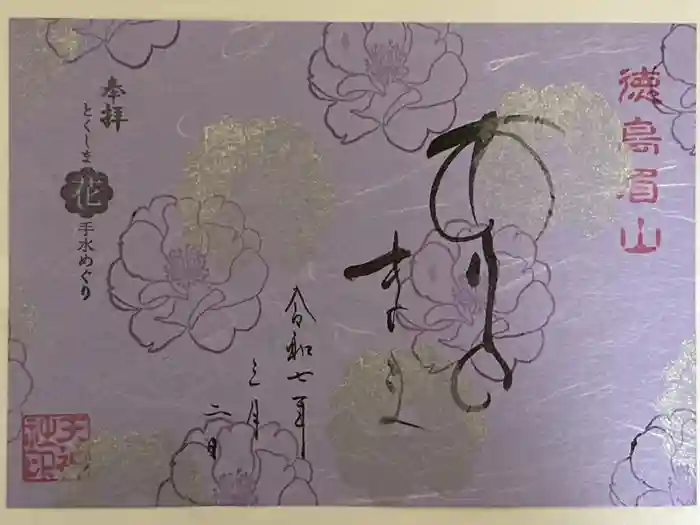 徳島眉山
令和七年
三月
二日
奉拝
とくしま花手水めぐり
天神
社印